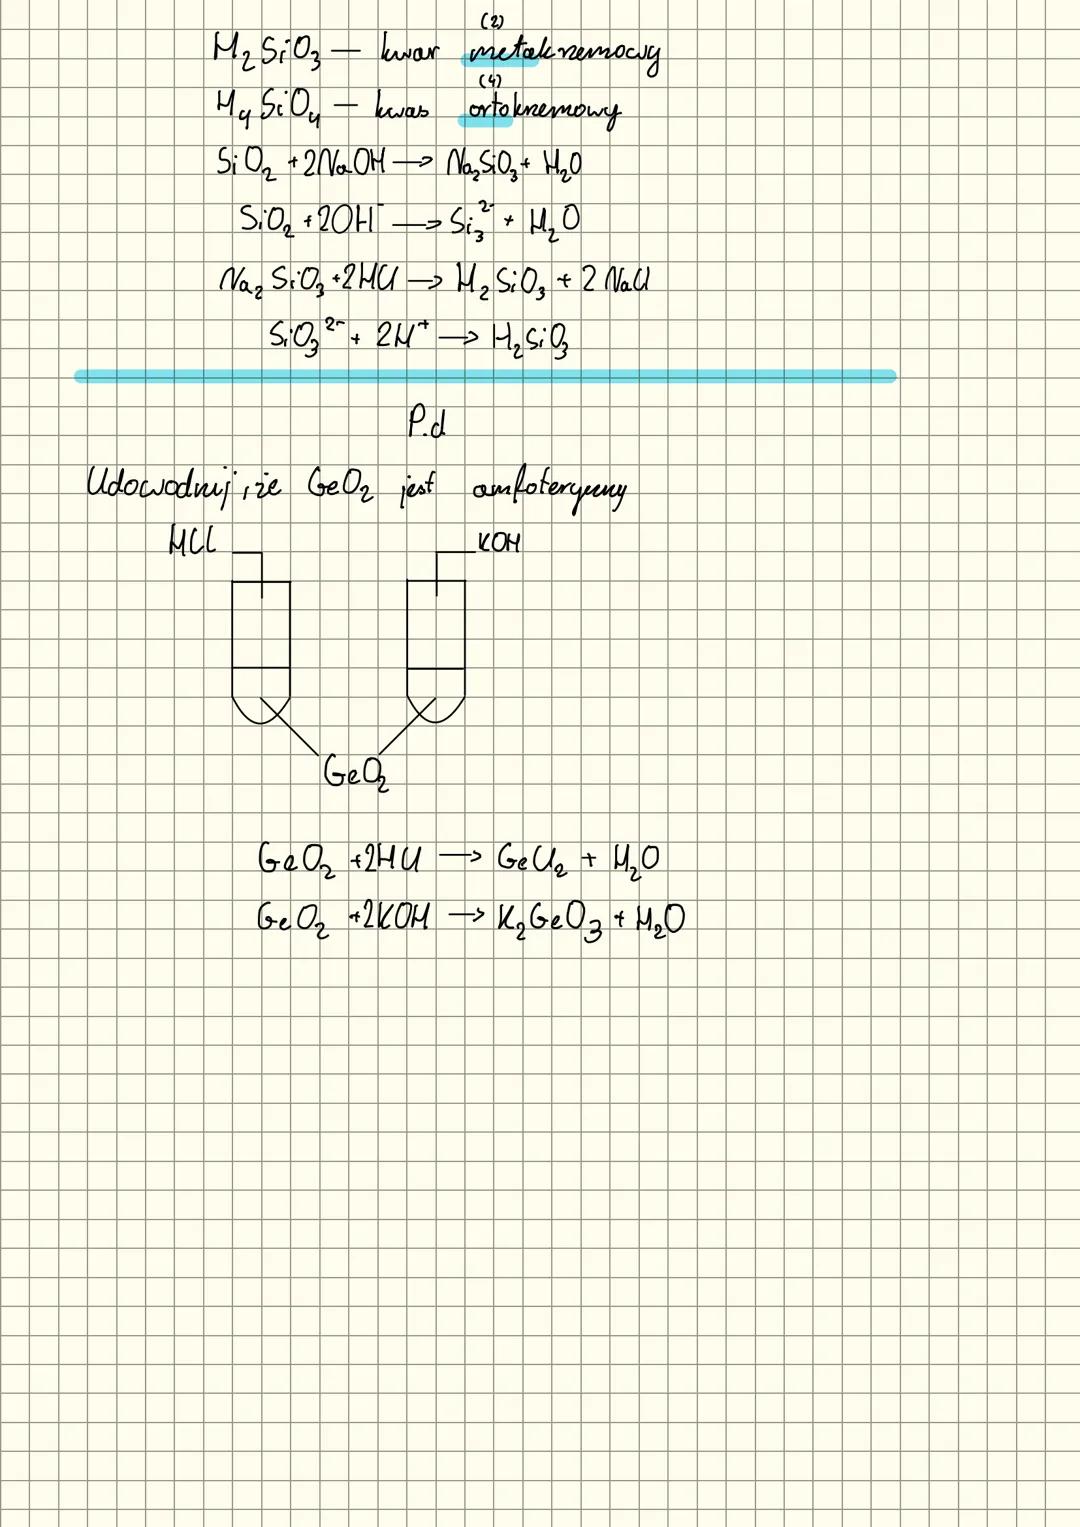 (2)
H₂SiO₃ — kwas metakrzemowy
(4)
H₄SiO₄ — kwas ortokrzemowy
SiO₂ + 2NaOH → Na₂SiO₃ + H₂O
SiO₂ + 2OH⁻ → Si₃²⁻ + H₂O
Na₂SiO₃ + 2HCl → H₂SiO₃ + 2NaCl
SiO₃²⁻ + 2H⁺ → H₂SiO₃
P.d
Udowodnij, że GeO₂ jest amfoteryczny
HCl KOH
GeO₂
GeO₂ + 2HCl → GeCl₂ + H₂O
GeO₂ + 2KOH → K₂GeO₃ + H₂O